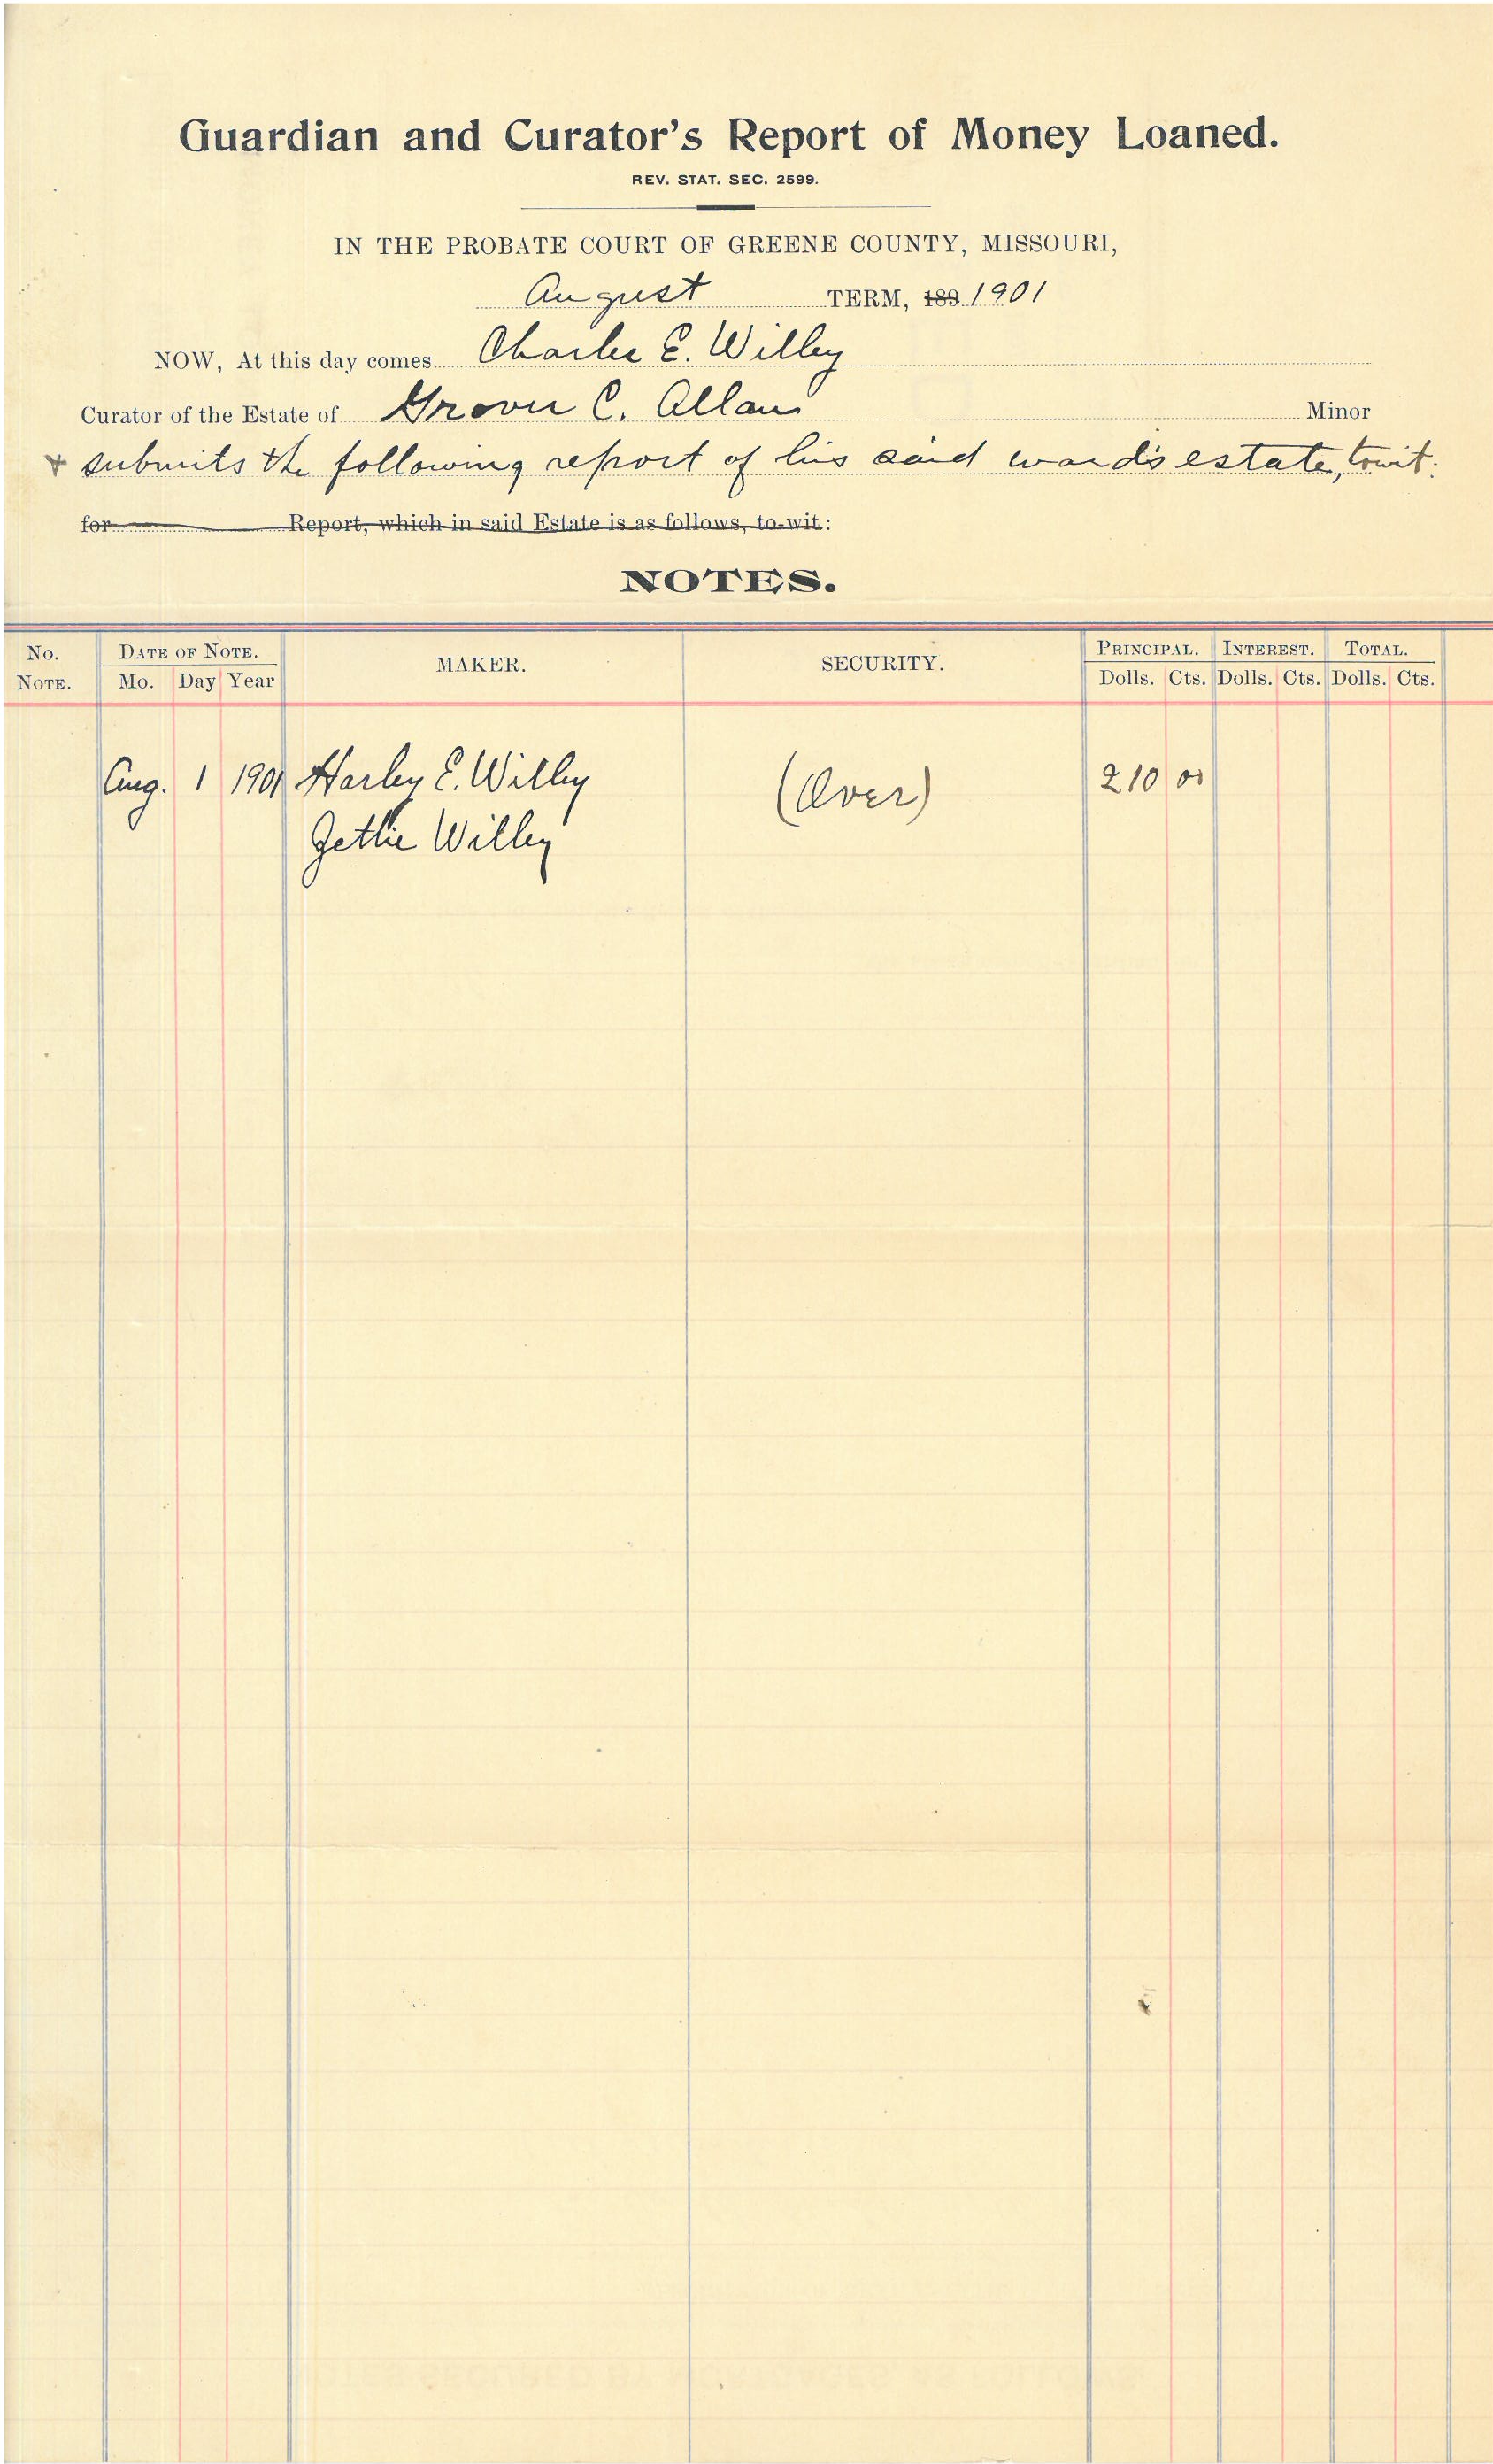 Guardian and Curator's Report of Money Loaned.
REV. STAT. SEC. 2599.
IN THE PROBATE COURT OF GREENE COUNTY, MISSOURI,
August TERM, 189 1901
NOW, At this day comes Charles E. Willey
Curator of the Estate of Grover C. Allan Minor
+ submits the following report of his said ward's estate, towit:
for Report, which in said Estate is as follows, to-wit:
NOTES.
No. NOTE. DATE OF NOTE. Mo. Day Year MAKER. SECURITY. PRINCIPAL. Dolls. Cts. INTEREST. Dolls. Cts. TOTAL. Dolls. Cts.
Aug. 1 1901 Harley E. Willey (Over) 210 00
Gettie Willey